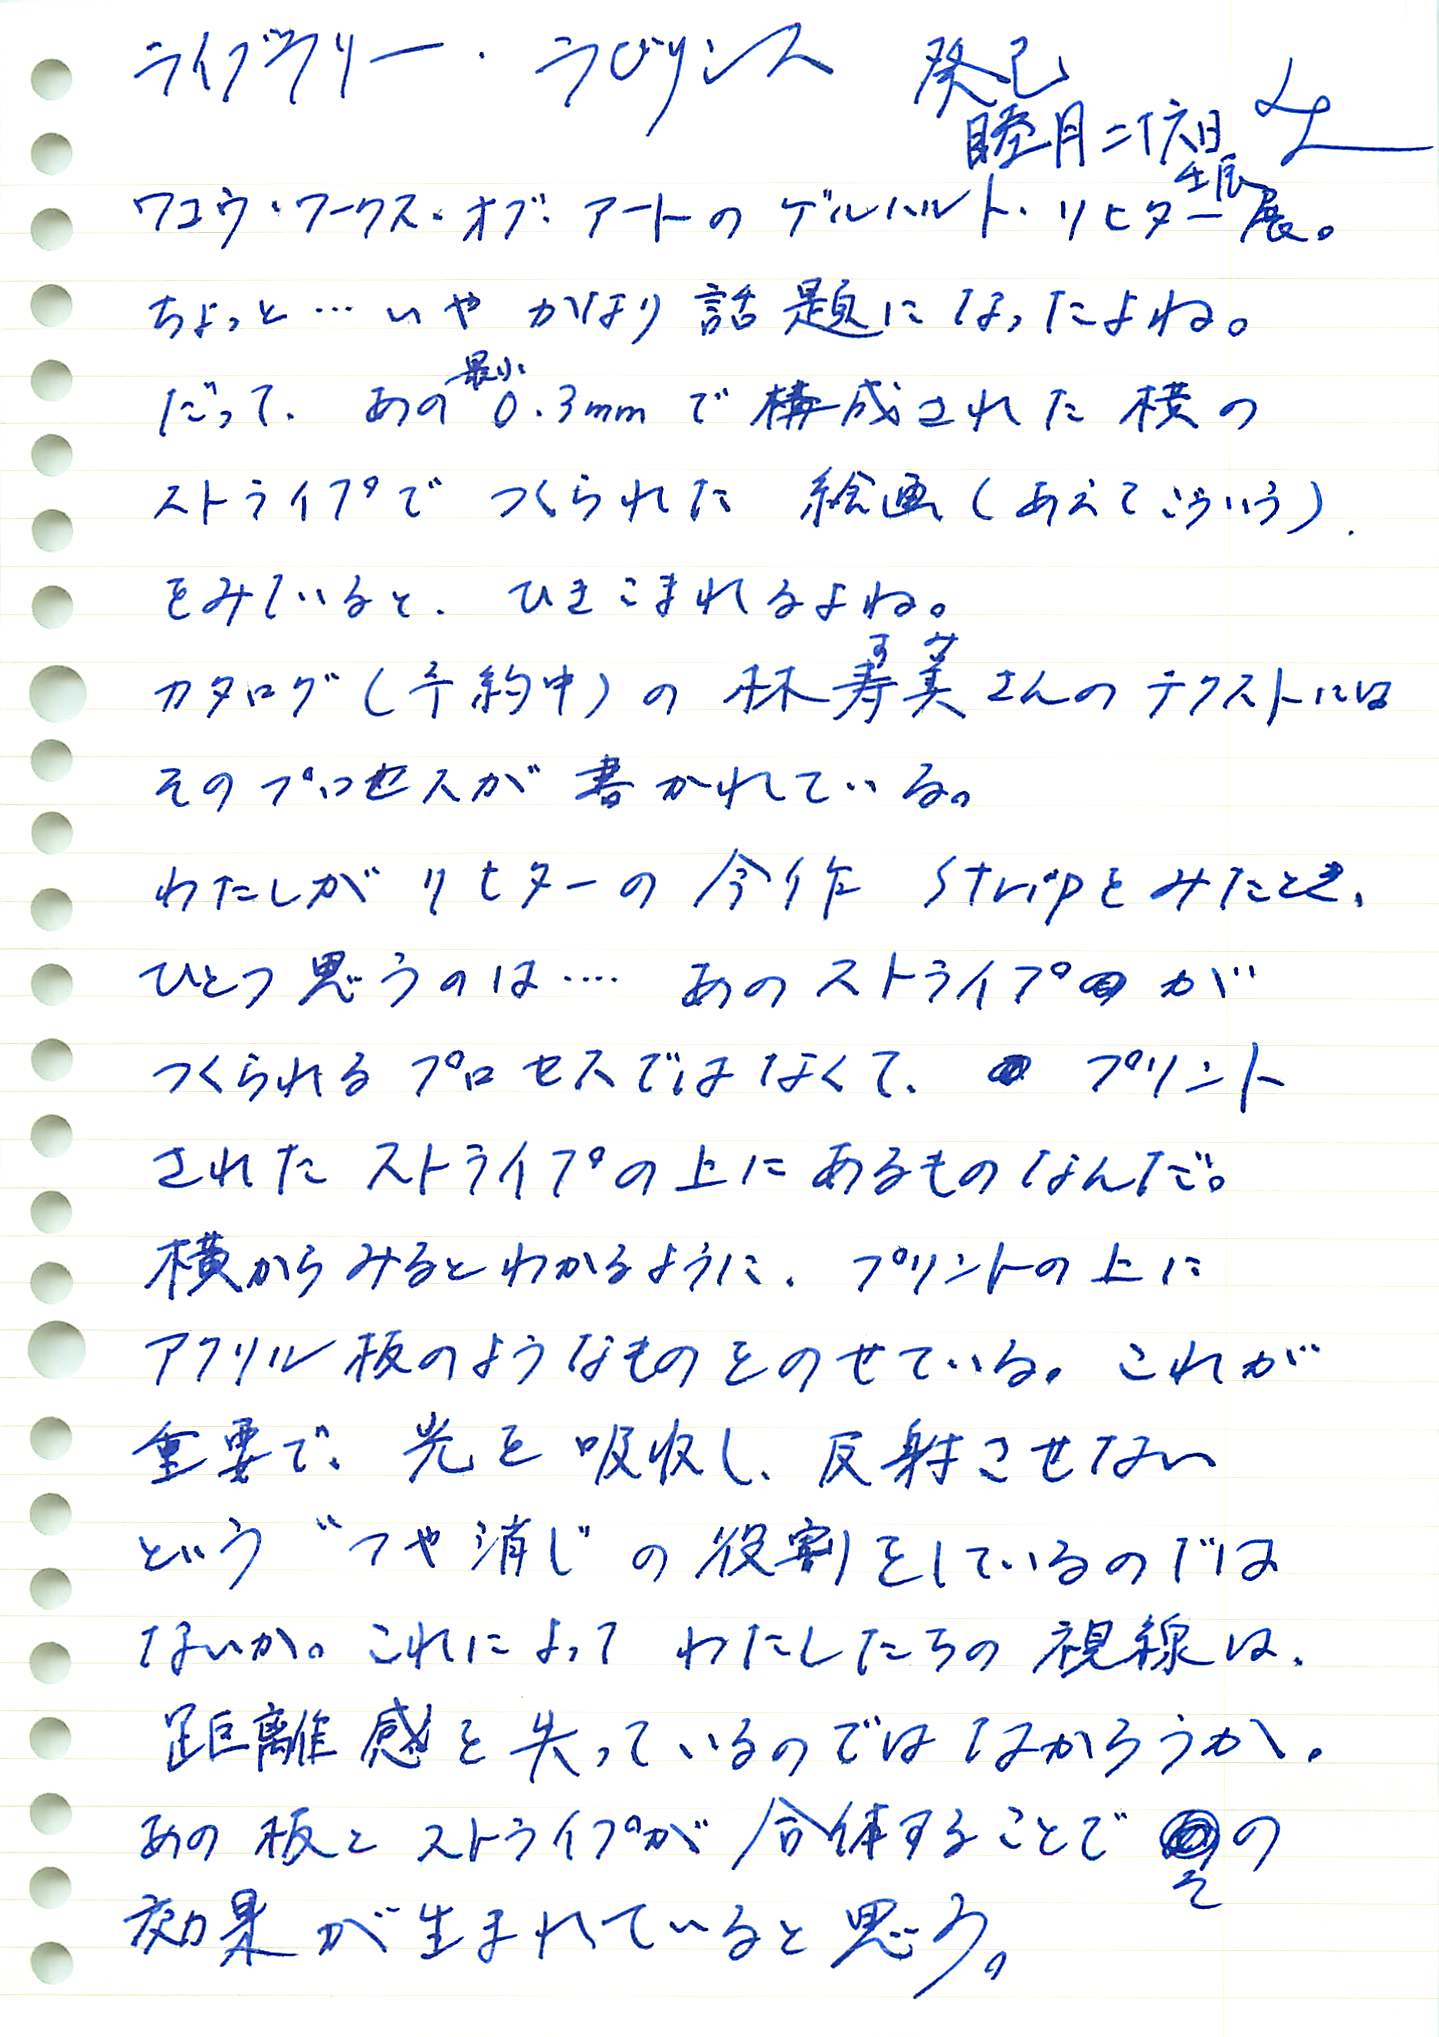 ライブラリー・ラビリンス 癸巳
睦月二十六日
壬辰
ワコウ・ワークス・オブ・アートのゲルハルト・リヒター展。
ちょっと…いや かなり 話題になったよね。
だって、あの最小0.3mmで構成された横の
ストライプで つくられた 絵画(あえてこういう)
をみていると、ひきこまれるよね。
カタログ(予約中)の 林寿美さんのテクストには
すみ
そのプロセスが書かれている。
わたしがリヒターの今作 Stripをみたとき、
ひとつ思うのは…. あのストライプが
つくられるプロセスではなくて、プリント
された ストライプの上にあるものなんだ。
横からみるとわかるように、プリントの上に
アクリル板のようなものをのせている。これが
重要で、光を吸収し、反射させない
という“つや消し”の役割をしているのでは
ないか。これによって わたしたちの視線は、
距離感を失っているのではなかろうか。
あの板とストライプが合体することでその
効果が生まれていると思う。